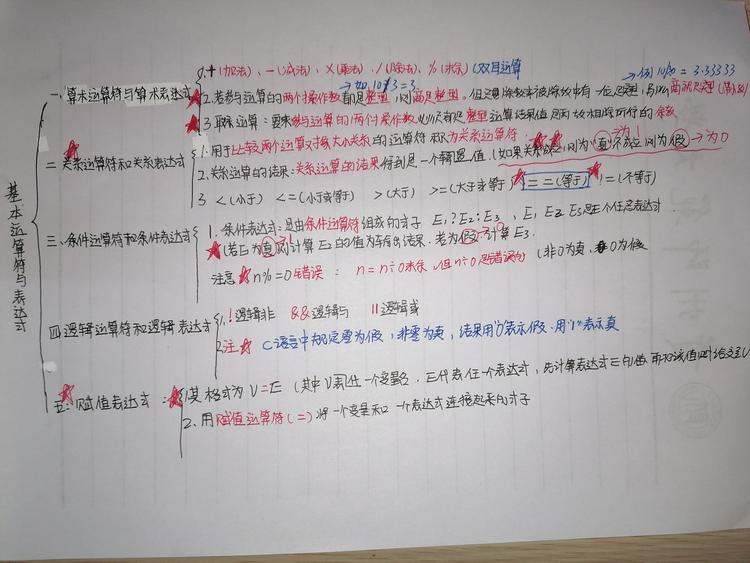 基本运算符与表达式
一.算术运算符与算术表达式
1.+(加法)、-(减法)、×(乘法)、/(除法)、%(求余)(双目运算
→如10/3=3.
→例10/3.0 = 3.33333
2.若参与运算的两个操作数都是整型,则商是整型,但只要除数和被除数中有一位是实型,则
商就是实型
3取余运算:要求参与运算的两个操作数必须都是整型运算结果值是两数相除所得的余数
二 关系运算符和关系表达式
1.用于比较两个运算对象大小关系的运算符称为关系运算符
2.关系运算的结果:关系运算的结果得到是一个逻辑值.(如果关系成立,则为"真"不成立则为假
→为1
→为0
3 <(小于) <=(小于或等于) >(大于) >=(大于或等于) ==(等于) !=(不等于)
三、条件运算符和条件表达式
1.条件表达式:是由条件运算符组成的式子 E₁?E₂:E₃ , E₁ E₂ E₃是三个任意表达式.
(若E₁为真则计算E₂的值为输出结果.若为假→0计算E₃.
注意 n%=0错误: n=n÷0求余,但n÷0是错误的 (非0为真,0为假
四 逻辑运算符和逻辑表达式
1.!逻辑非 &&逻辑与 ||逻辑或
2.注: C语言中规定零为假,非零为真,结果用"0"表示假.用"1"表示真
五: 赋值表达式:
1其格式为V=E (其中V代任一个变量名.E代表任一个表达式,先计算表达式E的值
2.用赋值运算符(=)将一个变量和一个表达式连接起来的式子